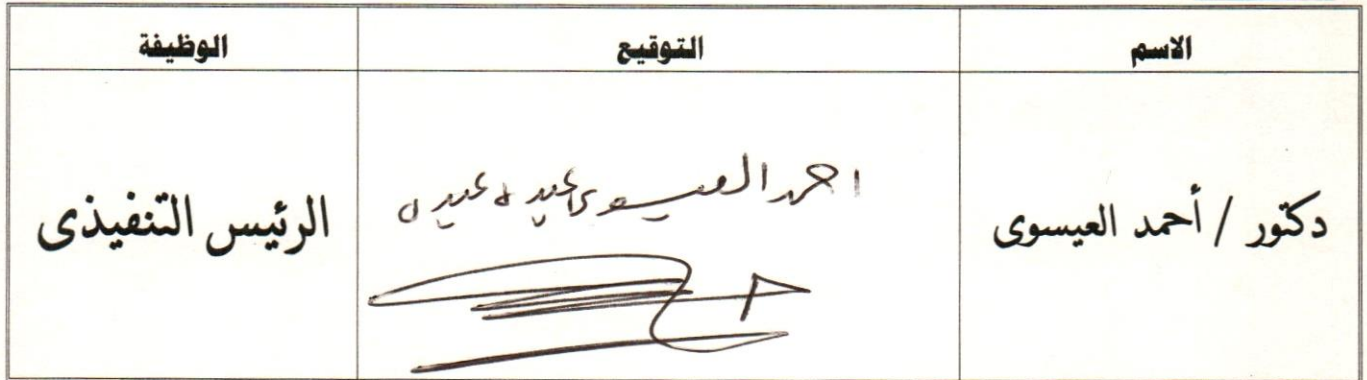 الاسم التوقيع الوظيفة
دكتور / أحمد العيسوى احمد العيسوى عيد عيد الرئيس التنفيذى